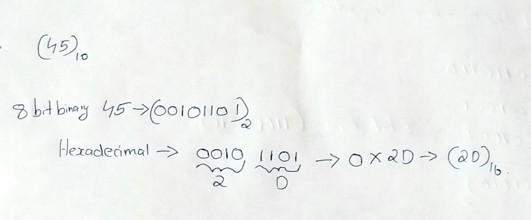 (45)₁₀
8 bit binary 45 → (00101101)₂
Hexadecimal → 0010 1101 → 0x2D → (2D)₁₆.
2 D